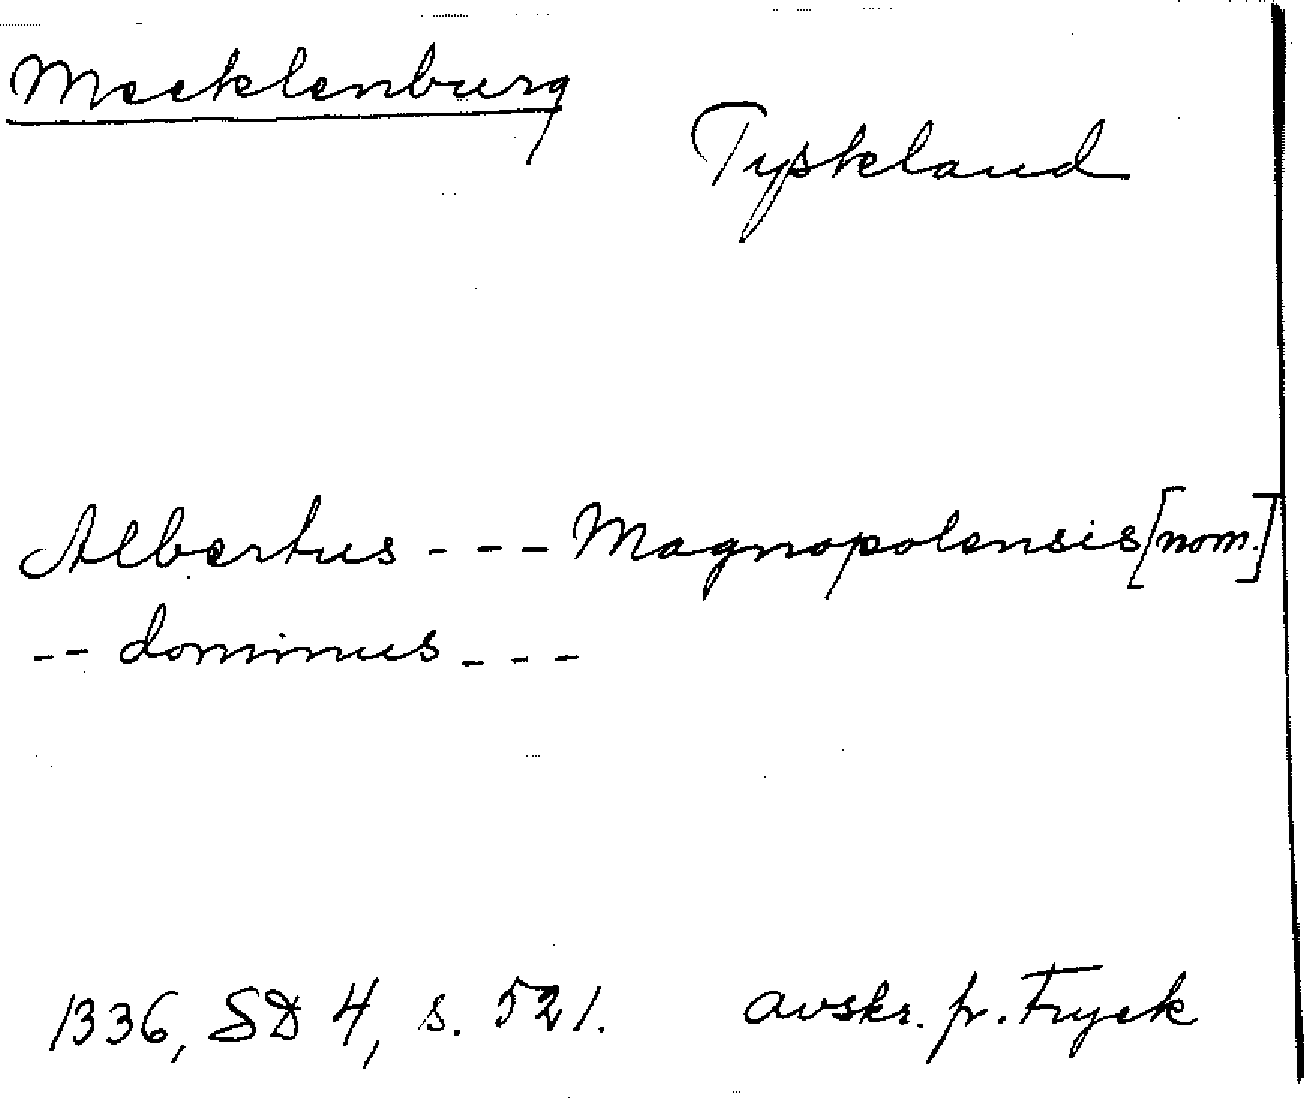 Mecklenburg
Tyskland
Albertus - - - Magnopolensis [nom.]
-- dominus - - -
1336, SD 4, s. 521. avskr. fr. Tryck